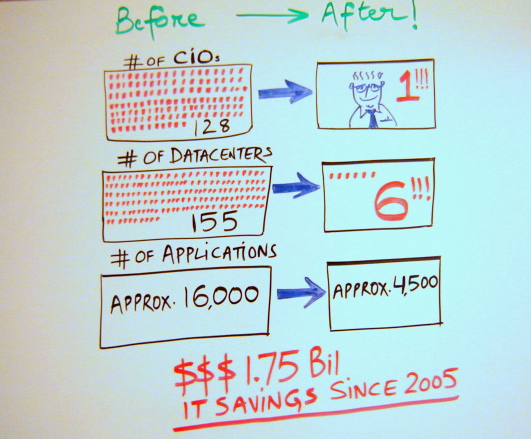 Before → After!
# OF CIOs
128
1!!!
# OF DATACENTERS
155
6!!!
# OF APPLICATIONS
APPROX. 16,000
APPROX. 4,500
$$$ 1.75 Bil
IT SAVINGS SINCE 2005